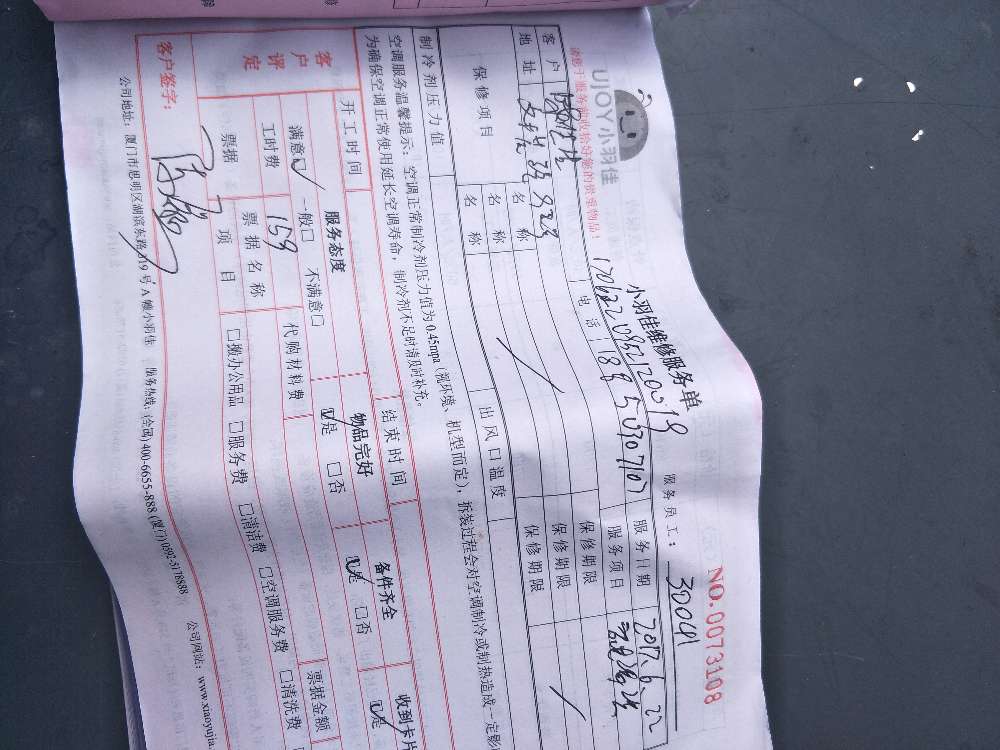 UJOY小羽佳
小羽佳维修服务单
NO.0073108
请您于服务前收拾好您的贵重物品!
服务员工: 32041
客户
电话 18950307107
服务日期 2017.6.22
地址
服务项目
保修项目
名称
保修期限
名称
保修期限
名称
保修期限
制冷剂压力值
出风口温度
空调服务温馨提示: 空调正常制冷剂压力值为0.45mpa (视环境、机型而定), 拆装过程会对空调制冷或制热造成一定影
为确保空调正常使用延长空调寿命, 制冷剂不足时请及时补充。
开工时间
结束时间
客户评定
服务态度
物品完好
备件齐全
收到卡片
满意☑ 一般□ 不满意□
☑是 □否
☑是 □否
☑是
工时费 159
代购材料费
票据金额
票据
票据名称
项目
□搬办公用品 □服务费 □清洁费 □空调服务费 □清洗费
客户签字:
公司地址: 厦门市思明区湖滨东路319号A幢小羽佳
服务热线: (全国) 400-6655-888 (厦门) 0592-5178888
公司网站: www.xiaoyujia.